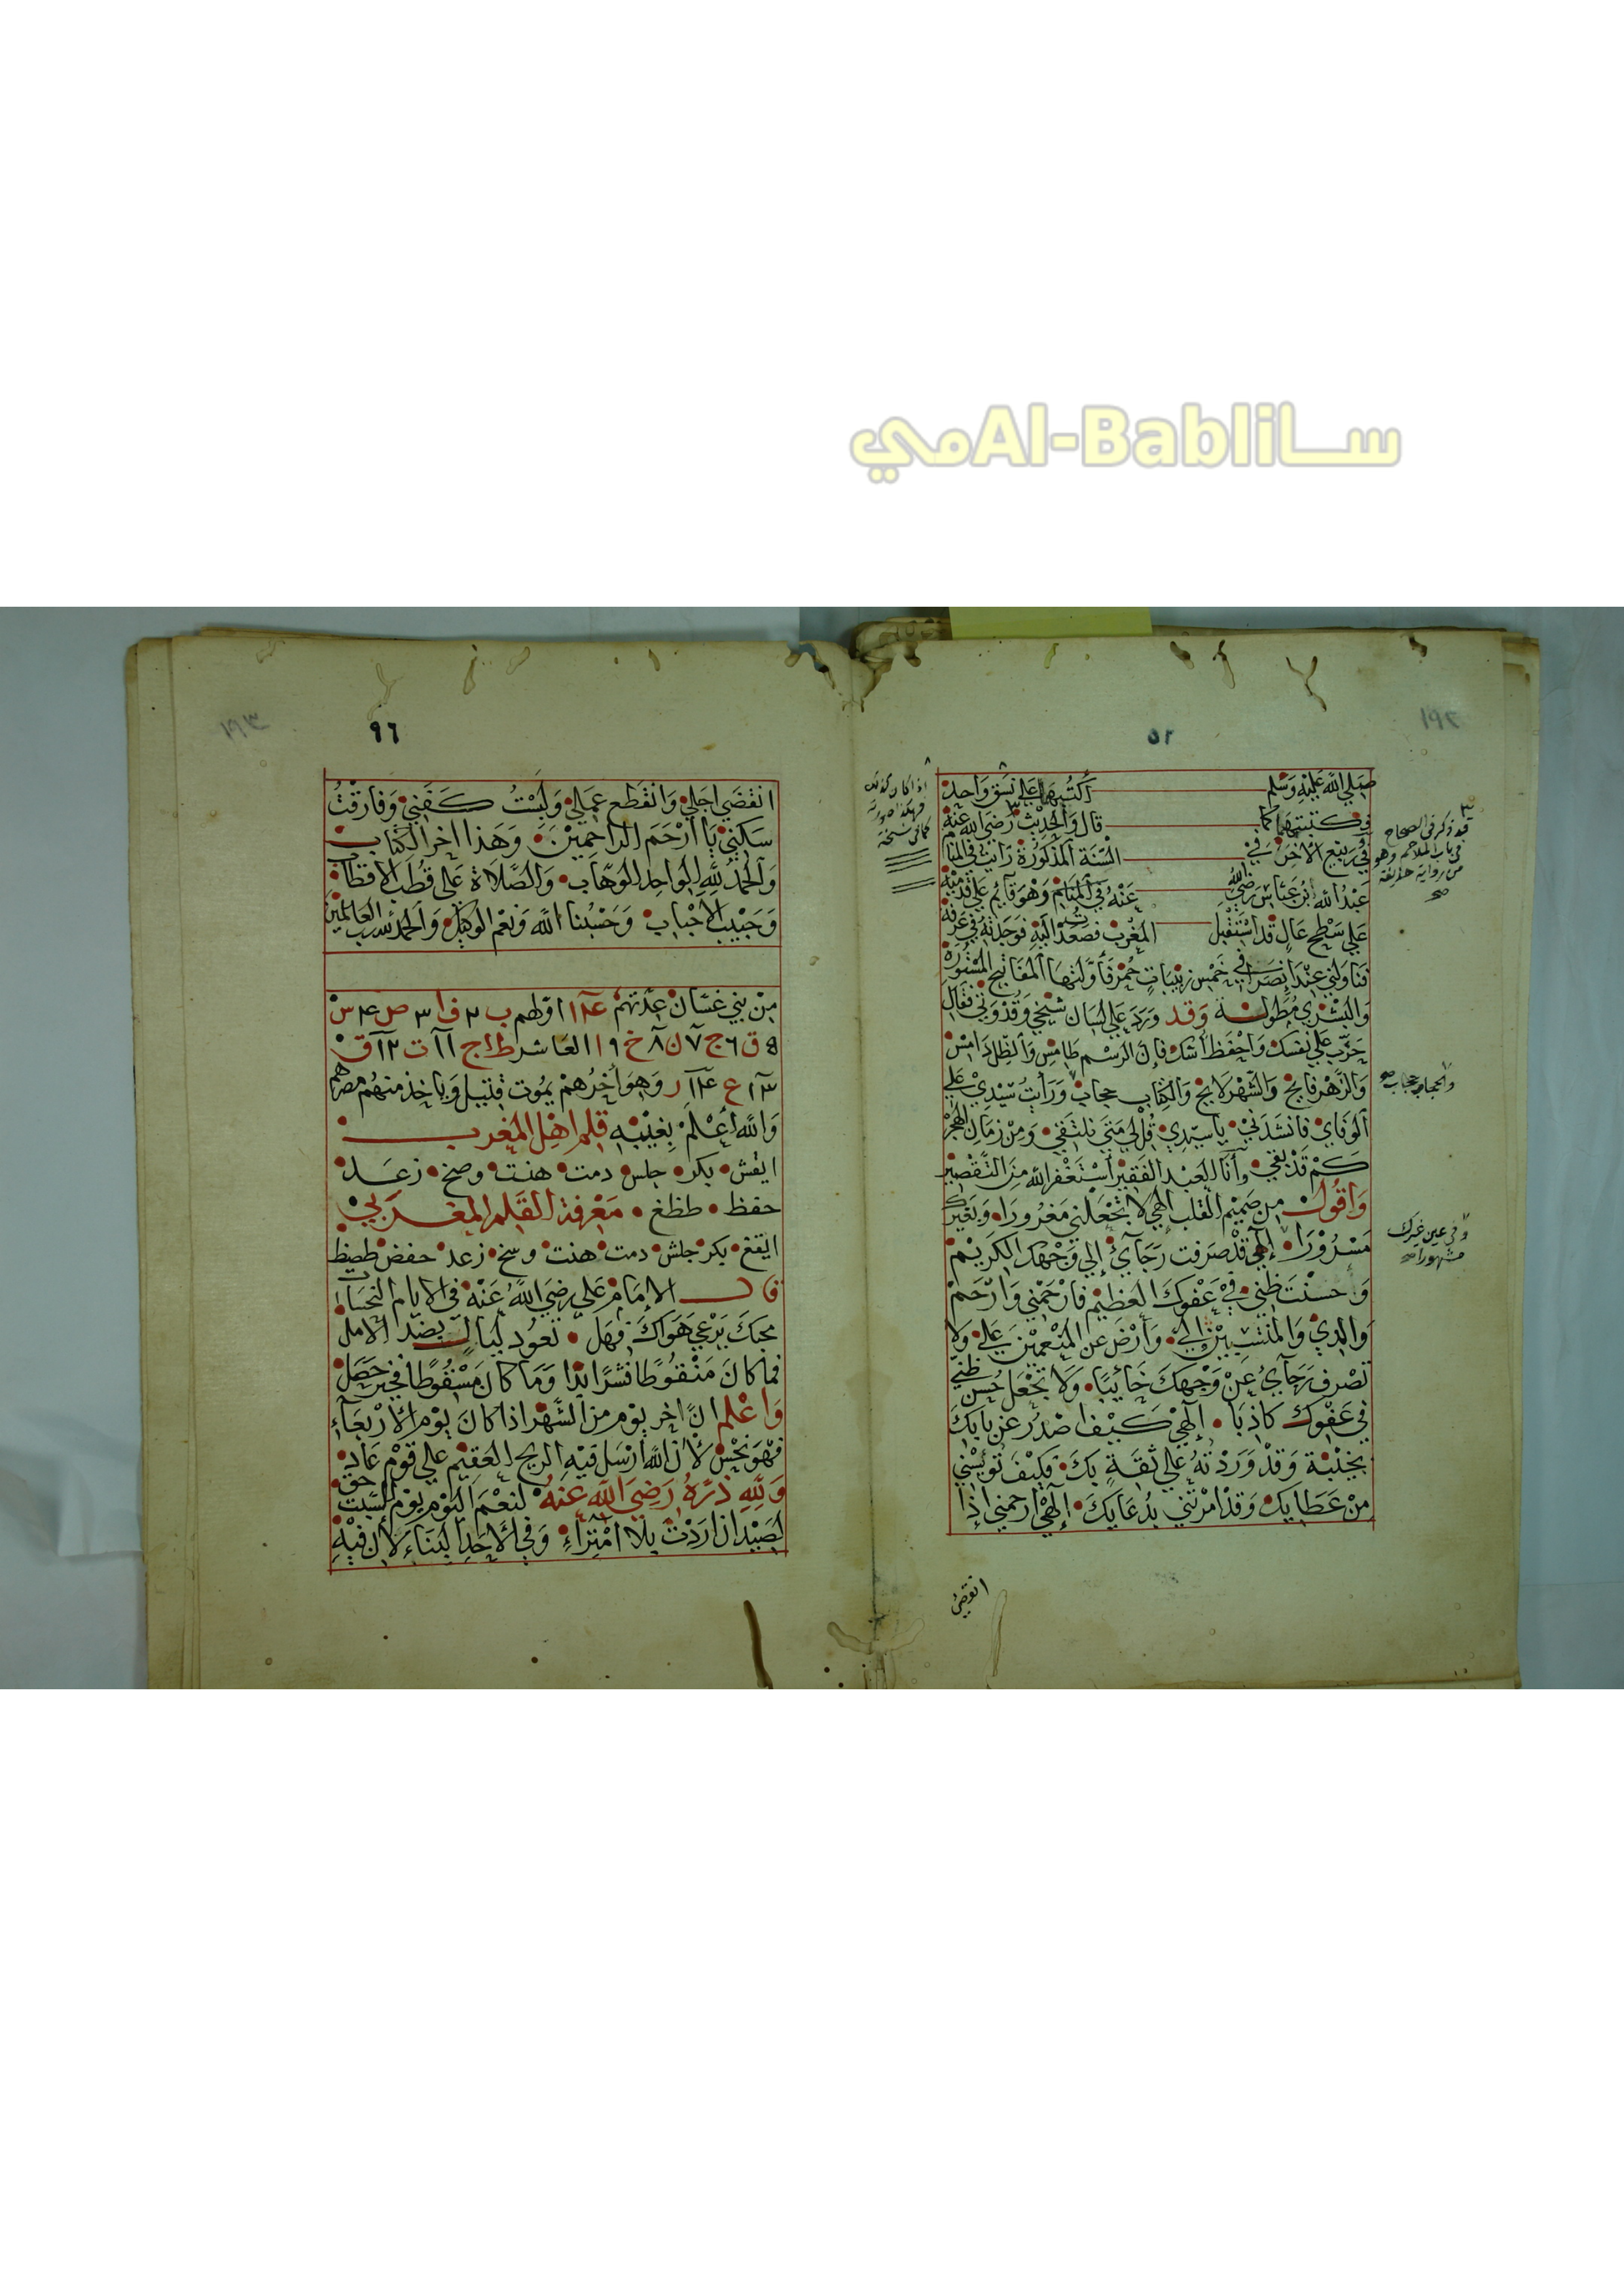 ساAl-Babliمي
١٩٢
٥٢
صلي الله عليه وسلم اكتبهما علي نسق واحد
فكتبتهما كما قال والحديث رضي الله عنه
في ربيع الاخر في السنة المذكورة رايت في المنام
عبد الله ابن عباس رضي الله عنه في المنام وهو قايم علي قدميه
علي سطح عال قد استقبل المغرب فصعدت اليه فوجدته في غرفة
فناولني عبد خمس زبيبات حمر فأولتها المفاتيح المستورة
والبشري مطولة وقد ورد علي لسان شيخي وقدوتي فقال
حزب علي نفسك واحفظ فان الرسم طامس والظل دامس
والزهر فايح والشهر لايح والكتاب حجاب ورايت سيدي علي
الوفاي فانشدني يا سيدي قل لي متي نلتقي ومن زمان الهجر
كم قد بقي وانا العبد الفقير استغفر الله من التقصير
واقول من صميم القلب الهي لا تجعلني مغرورا وبغيرك
مسرورا الهي قد صرفت رجآئ إلي وجهك الكريم
واحسنت ظني في عفوك العظيم فارحمني وارحم
والدي والمنتسبين الي وارض عن المنعمين علي ولا
تصرف رجآئ عن وجهك خائبا ولا تجعل حسن ظني
في عفوك كاذبا الهي كيف اصدر عن بابك
بخيبة وقد وردته علي ثقة بك فكيف تويسني
من عطايك وقد امرتني بدعايك الهي ارحمني إذا
انقضي
قد ذكر في الصحاح
في باب الملاحم وهو
من رواية حذيفة
صح
والحجاب حجاب صح
وفي عين غيرك
مشهورا صح
اذا كان كذلك
فهكذا صورته
كما في نسخة
١٩٣
٩٦
انقضي اجلي وانقطع عملي ولبست كفني وفارقت
سكني يا ارحم الراحمين وهذا اخر الكتاب
والحمد لله الواحد الوهاب والصلاة علي قطب الاقطاب
وحبيب الاحباب وحسبنا الله ونعم الوكيل والحمد لله رب العالمين
من بني غسان عدتهم ١٤ اولهم ب ٢ ف ٣ ص ٤ س
٥ ق ٦ ج ٧ ل ٨ خ ٩ العاشر ط ج ١١ ت ١٢ ق
١٣ ع ١٤ ر وهو اخرهم يموت قتيل وياخذ منهم مصرهم
والله اعلم بغيبه قلم اهل المغرب
ايقش بكر جلس دمت هنت وصخ زعد
حفظ طظغ معرفة القلم المغربي
ايقغ بكر جلش دمت هنت وسخ زعد حفض طصظ
قال الامام علي رضي الله عنه في الايام النحسات
محبك يرعي هواك فهل تعود ليال بضد الامل
فما كان منقوطا فشرا بدا وما كان مسقوطا فخير حصل
واعلم ان اخر يوم من الشهر اذا كان يوم الاربعآء
فهو نحس لان الله ارسل فيه الريح العقيم علي قوم عاد
ولله دره رضي الله عنه لنعم اليوم يوم السبت حق
لصيد ان اردت بلا امتراء وفي الاحد البناء لان فيه